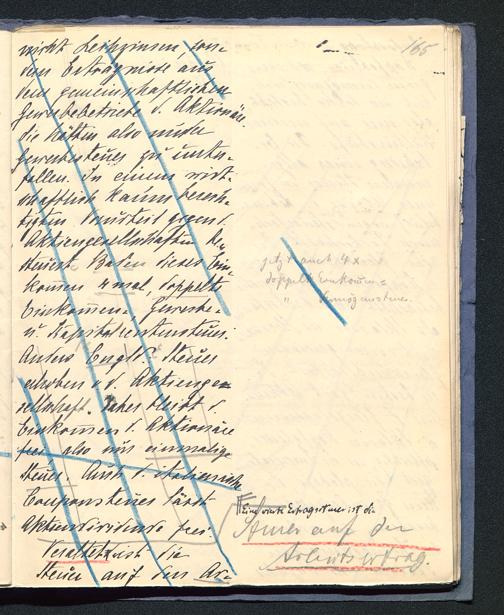 nicht Leihzinsen, son-
dern Erträgnisse aus
dem gemeinschaftlichen
Gewerbebetriebe d. Aktionäre.
die hätten also nur der
Gewerbesteuer zu unter-
fallen. In einem wirt-
schaftlich kaum berech-
tigten gegen d.
Aktiengesellschaften be-
steuert Baden dieses Ein-
kommen 4 mal, doppelte
Einkommen-, Gewerbe-
u. Kapitalrentensteuer.
Anders Engld.: Steuer
erhoben v. d. Aktienge-
sellschaft. Daher bleibt d.
Einkommen d. Aktionäre
frei also nur einmalige
Steuer. Auch d. italienische
Couponsteuer lässt
Aktiendividende frei.
Verfehlt ist die
Steuer auf den Ar-
165
jetzt auch 4 x
doppelte Einkommen-
" Vermögenssteuer.
Eine Ertragssteuer ist die
Steuer auf den
Arbeitsertrag.